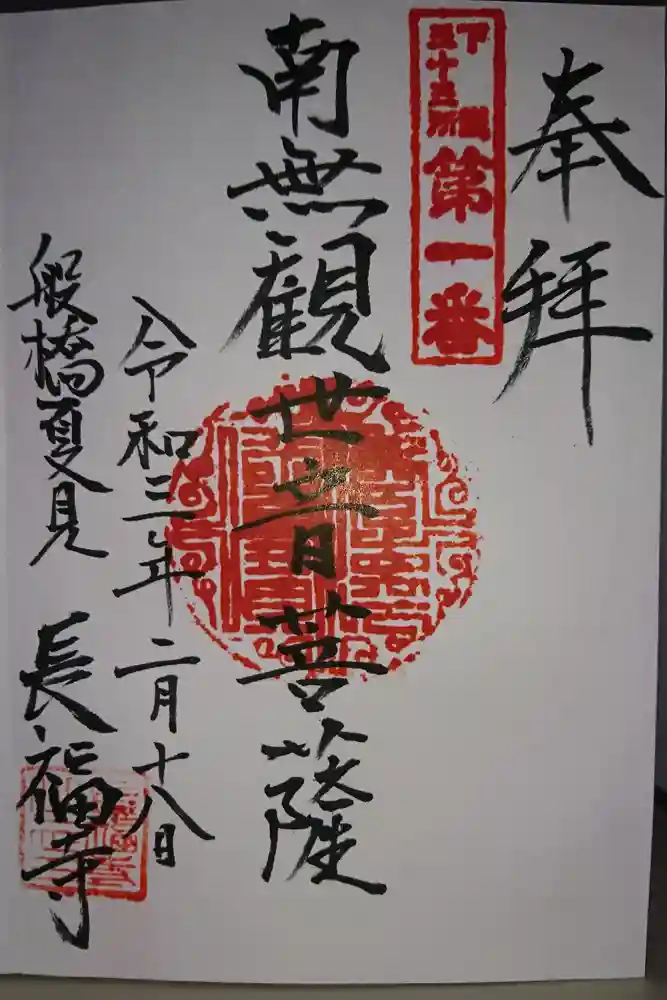 奉拝
下総三十三所第一番
南無観世音菩薩
令和三年二月十八日
船橋夏見 長福寺